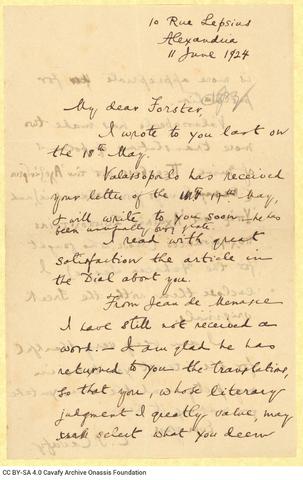 10 Rue Lepsius
Alexandria
11 June 1924
My dear Forster,
I wrote to you last on
the 18th May.
Valassopoulo has received
your letter of the 19th May,
& will write to you soon — he has
been unusually busy of late.
I read with great
satisfaction the article in
the Dial about you.
From Jean de Menasce
I have still not received a
word. — I am glad he has
returned to you the translations,
so that you, whose literary
judgment I greatly value, may
select what you deem
CC BY-SA 4.0 Cavafy Archive Onassis Foundation